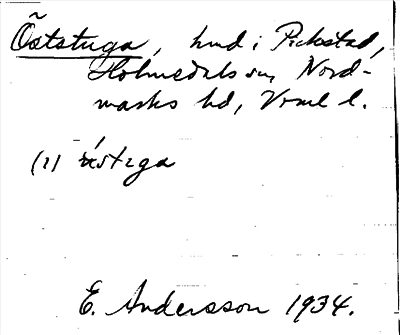 Öststuga, hmd i Rickstad,
Holmedals sn, Nord-
marks hd, Vrml l.
(1) ǘstɛga
E. Andersson 1934.